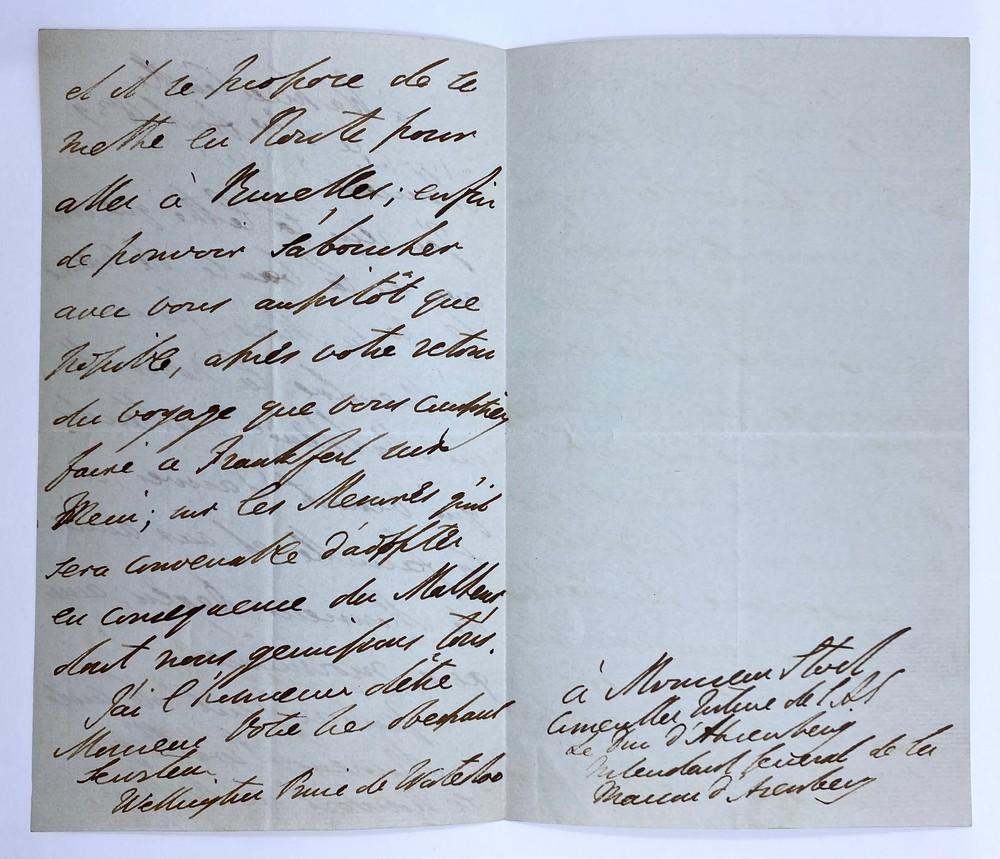 et il se propose de se
mettre en Route pour
aller à Bruxelles; enfin
de pouvoir s'aboucher
avec vous aussitôt que
possible, après votre retour
du voyage que vous comptiez
faire a Frankfort sur
Mein; sur les Mesures qu'il
sera convenable d'adopter
en consequence du Malheur
dont nous gemissons tous.
J'ai l'honneur d'être
Monsieur Votre tres obeissant
Serviteur
Wellington Prince de Waterloo
à Monsieur Stock
Conseiller Intime de S.A.S
Le Duc d'Ahrenberg
Intendant Général de la
Maison d'Arenberg